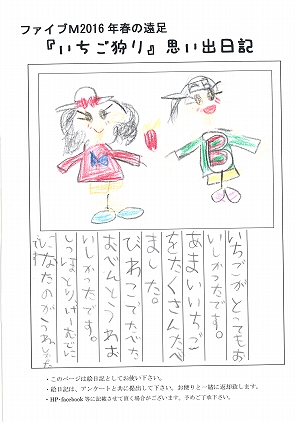 ファイブM2016年春の遠足
『いちご狩り』思い出日記
M
B
いちごがとってもお
いしかったです。
あまいいちご
をたくさんたべ
ました。
びわこでたべた
おべんとうもお
いしかったです。
しっぽとりげーむで
になったのがうれしかった
・このページは絵日記としてお使い下さい。
・絵日記は、アンケートと共に提出して下さい。お便りと一緒に返却致します。
・HP・facebook等に記載させて頂く場合がございます。予めご了承下さい。